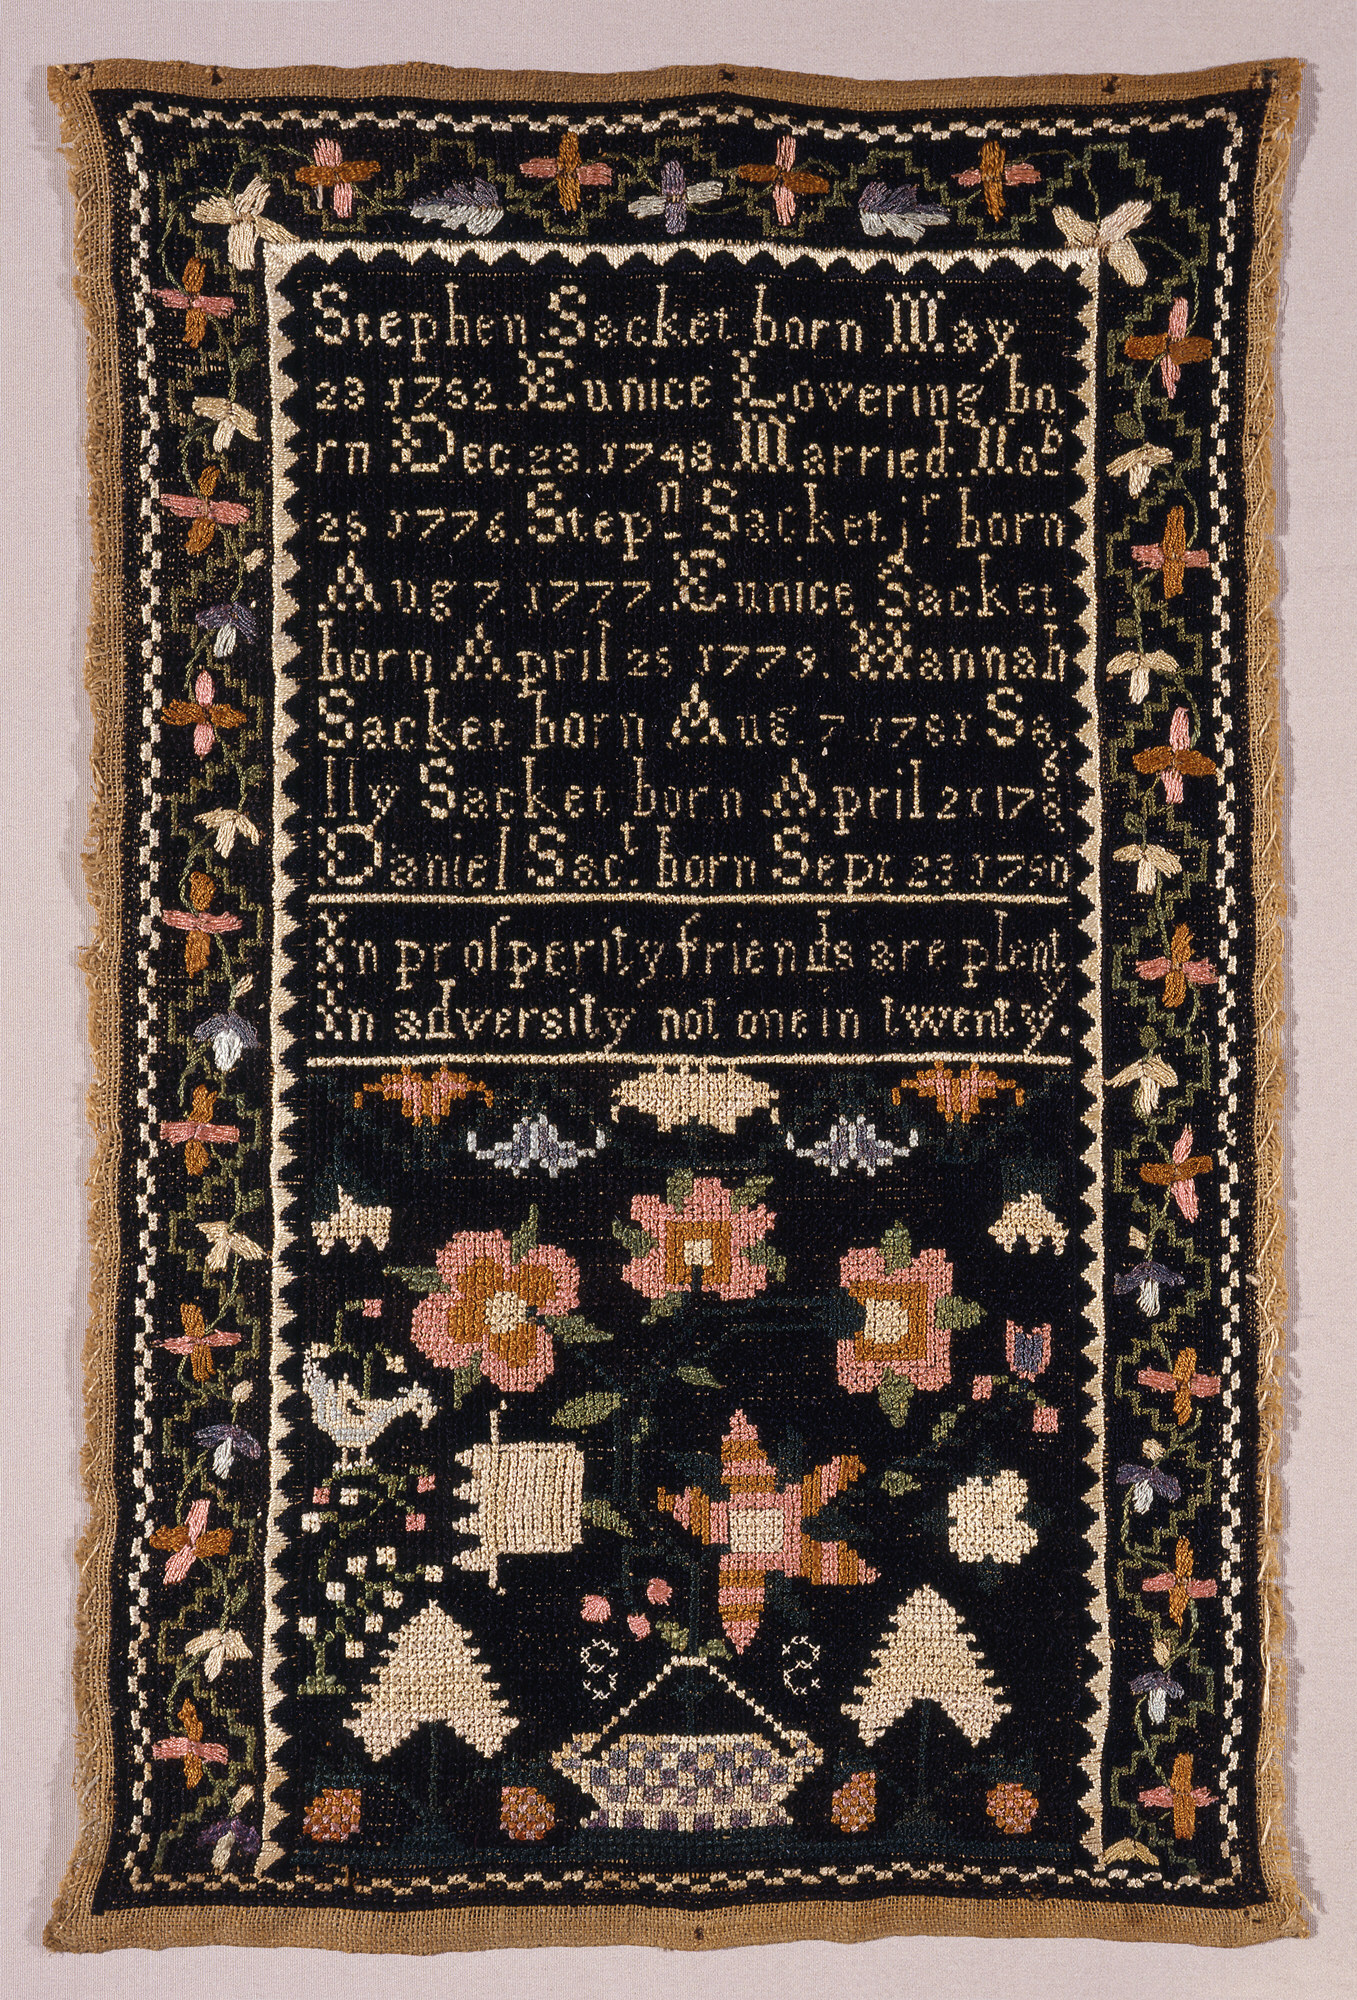 Stephen Sacket born May
23 1752. Eunice Lowering bo
rn Dec. 23. 1748. Married Nob
25 1776. Stepn Sacket jr born
Aug 7. 1777. Eunice Sacket
born April 25 1779. Hannah
Sacket born Aug 7 1781 Sa
lly Sacket born April 21 1786
Daniel Sact born Sept 23 1790
In proſperity friends are plenty
In adversity not one in twenty.
S S